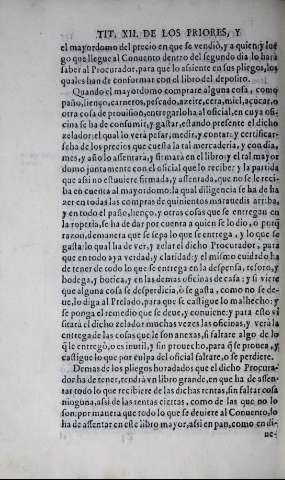 TIT. XII. DE LOS PRIORES, Y
el mayordomo del precio en que se vendió, y a quien: y luego
go que llegue al Conuento dentro del segundo dia lo hará
saber al Procurador, para que lo assiente en sus pliegos, los
quales han de conformar con el libro del deposito.
Quando el mayordomo comprare alguna cosa, como
paño, lienço, carneros, pescado, azeite, cera, miel, açucar, o
otra cosa de prouision, entregarloha al oficial, en cuya ofi-
cina se ha de consumir, y gastar, estando presente el dicho
zelador: el qual lo verà pesar, medir, y contar: y certificar-
seha de los precios que cuesta la tal mercaderia, y con dia,
mes, y año lo assentara, y firmarà en el libro: y el tal mayor
domo juntamente con el oficial que lo recibe: y la partida
que assi no estuuiere firmada, y assentada, que no se le reci-
ba en cuenta al mayordomo: la qual diligencia se ha de ha
zer en todas las compras de quinientos marauedis arriba,
y en todo el paño, lienço, y otras cosas que se entregan en
la roperia, se ha de dar por cuenta a quien se lo dio, o porq̃
razon, de manera que se sepa lo que se entrega, y lo que se
gasta: lo qual ha de ver, y zelar el dicho Procurador, para
que en todo aya verdad, y claridad: y el mismo cuidado ha
de tener de todo lo que se entrega en la despensa, tesoro, y
bodega, y botica, y en las demas oficinas de casa: y si viere
que alguna cosa se desperdicia, ò se gasta, como no se de-
ue, lo diga al Prelado, para que se castigue lo malhecho: y
se ponga el remedio que se deue, y conuiene: y para esto vi
sitarà el dicho zelador muchas vezes las oficinas, y verà la
entrega de las cosas que le son anexas, si faltare algo de lo
q̃ le entregò, o es inutil, y sin prouecho, para q̃ se prouea, y
castigue lo que por culpa del oficial faltare, o se perdiere.
Demas de los pliegos horadados que el dicho Procura-
dor ha de tener, tendrà vn libro grande, en que ha de assen-
tar todo lo que recibiere de las dichas rentas, sin faltar cosa
ninguna, assi de las rentas ciertas, como de las que no lo
son: por manera que todo lo que se deuiere al Conuento, lo
ha de assentar en este libro mayor, assi en pan, como en di-
ne-